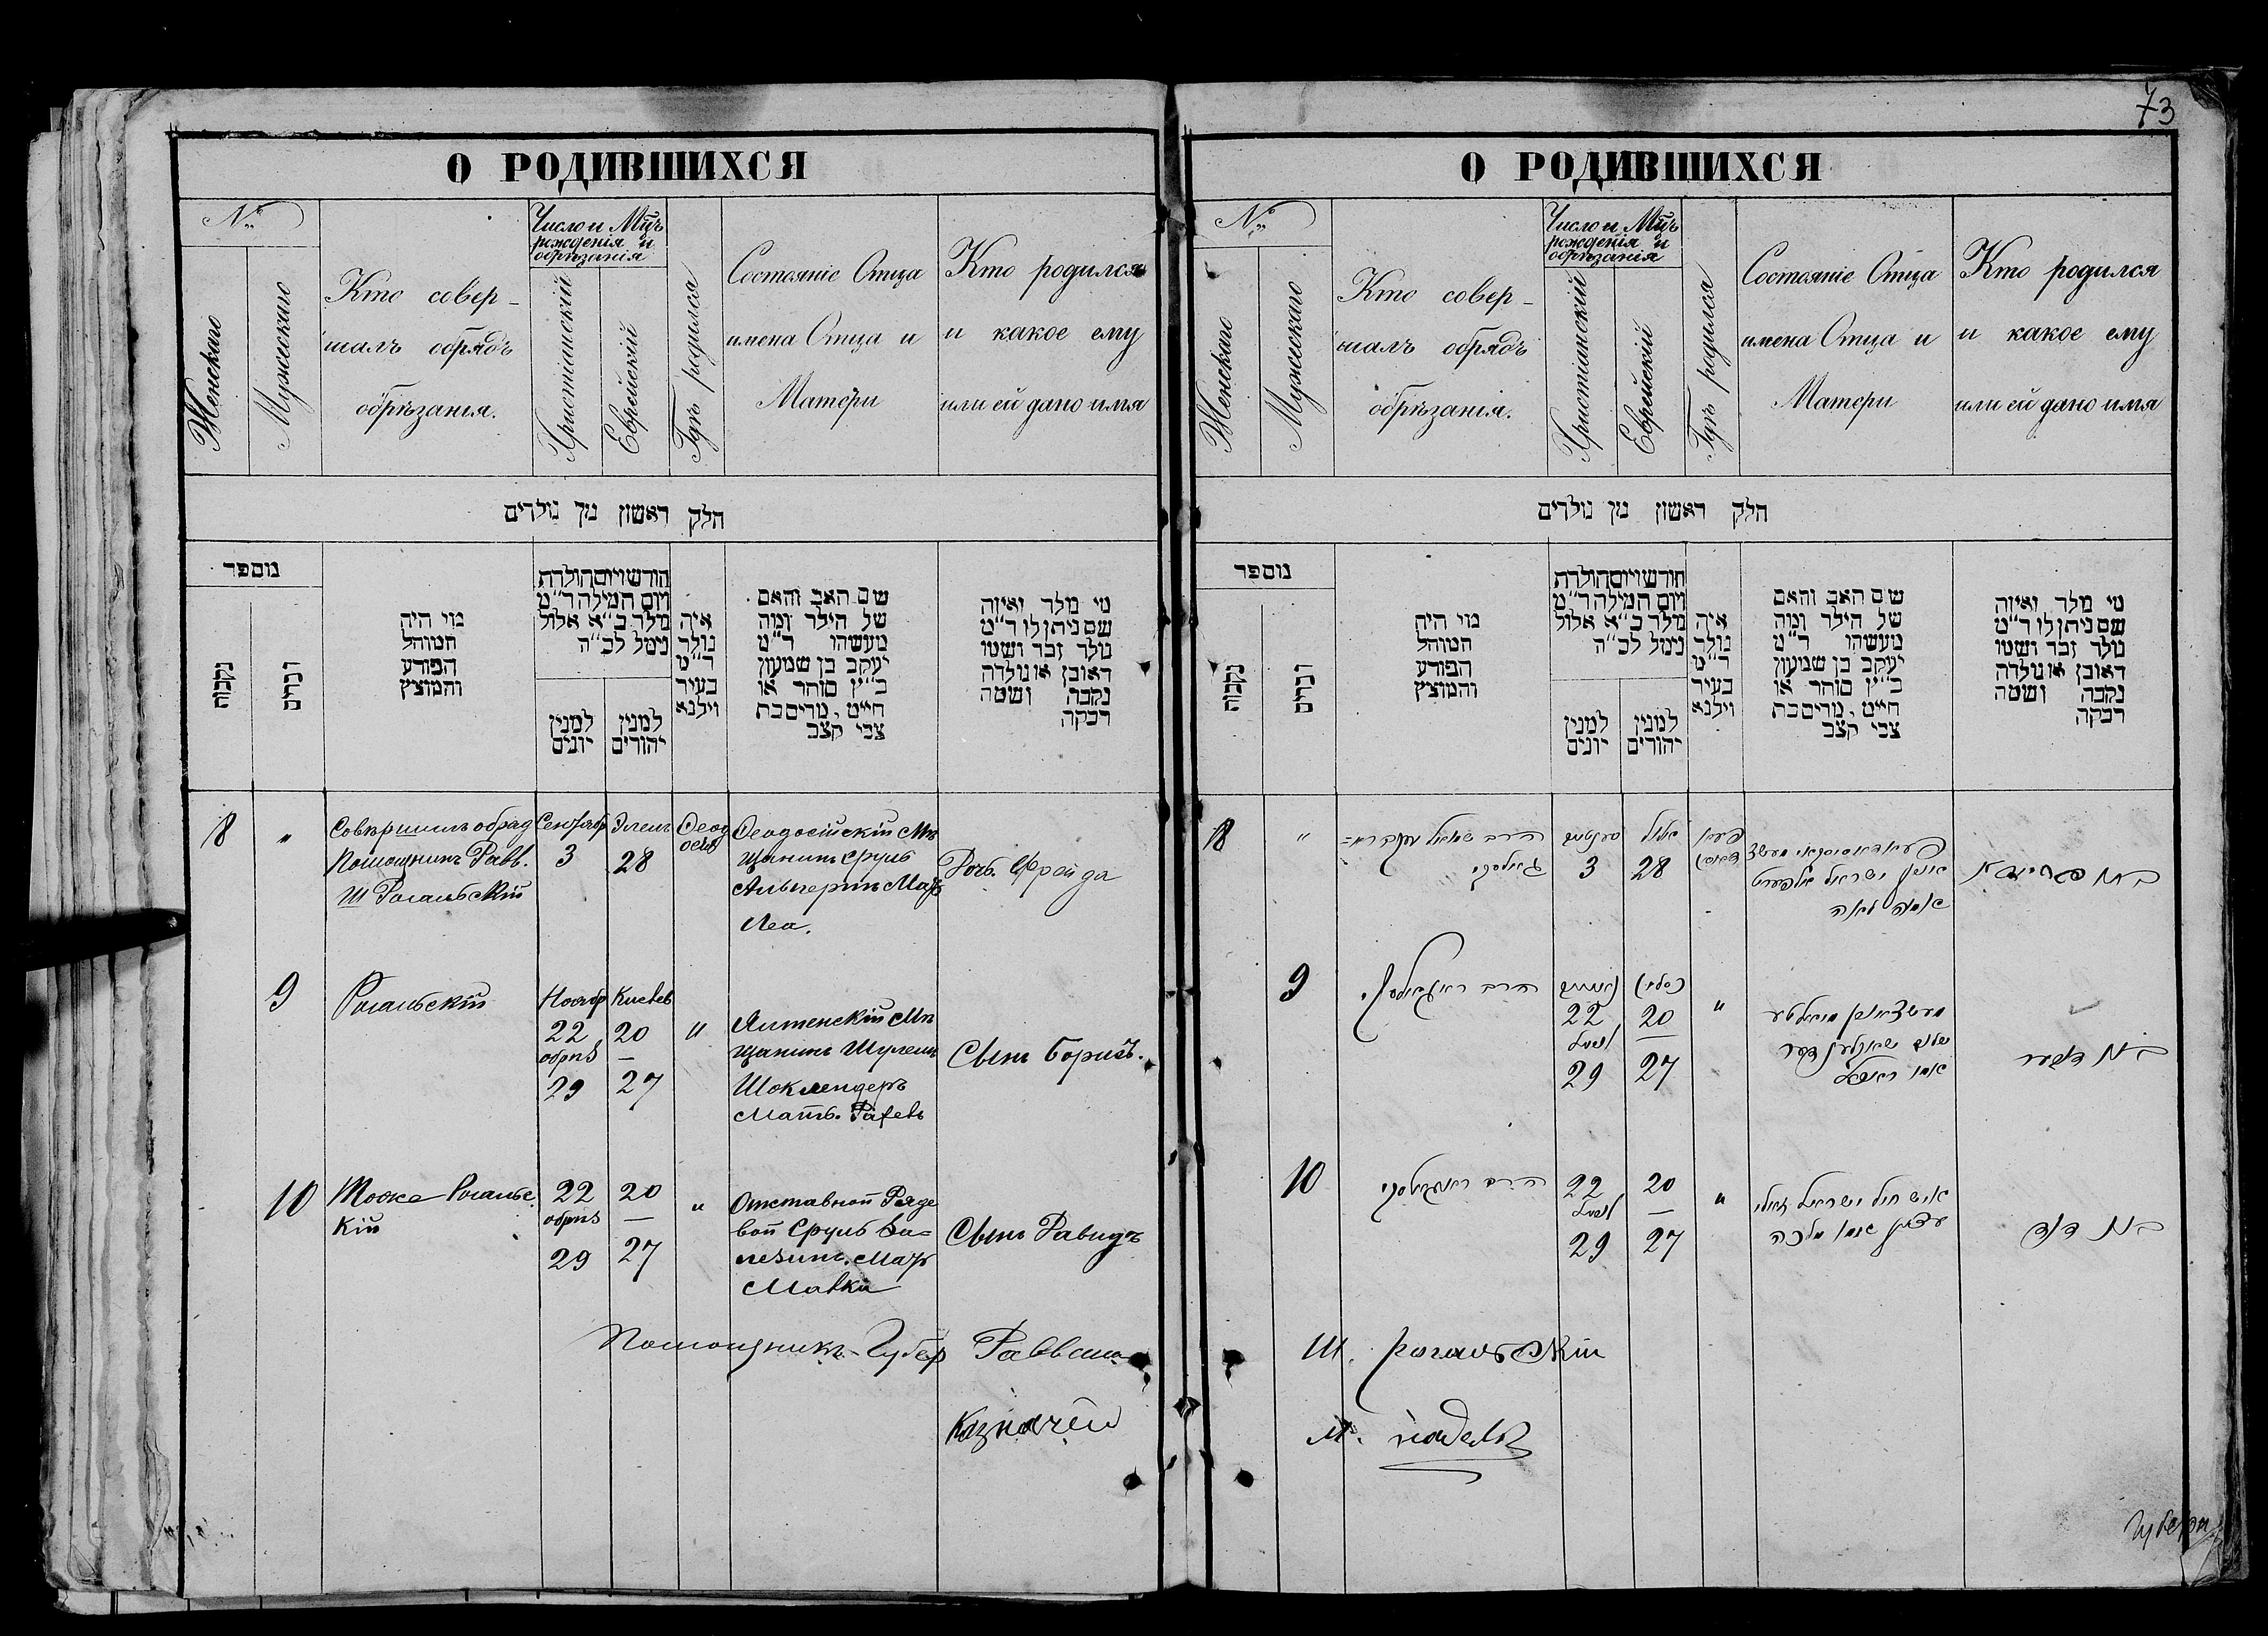 73
О РОДИВШИХСЯ
№
Женскаго
Мужескаго
Кто совер-
шалъ обрядъ
обрѣзанія.
Число и Мцъ
рожденія и
обрѣзанія
Христіанскій
Еврейскій
Гдѣ родился
Состояніе Отца
имена Отца и
Матери
Кто родился
и какое ему
или ей дано имя
חלק ראשון מן נולדים
מספר
נקבות
זכרים
מי היה
המוהל
הפורע
והמוצץ
חודש ויום הולדת
ויום המילה ד"מ
נולד כ"א אלול
נימל לכ"ה
למנין
יונים
למנין
יהודים
איה
נולד
ד"מ
בעיר
וילנא
שם האב והאם
של הילד ומה
מעשהו ד"מ
יעקב בן שמעון
כ"ץ סוחר או
חייט, מרים בת
צבי קצב
מי נולד ואיזה
שם ניתן לו ד"מ
נולד זכר ושמו
ראובן או נולדה
נקבה ושמה
רבקה
8
"
Совершилъ обряд
Помощникъ Равв.
Ш Рогальскій
Сентябр
3
Элелъ
28
Феод
осія
Феодосійскій Мѣ
щанинъ Сруль
Альперинъ Мать
Леа.
Дочь Фрейда
9
Рогальскій
Ноябр
22
обрѣз
29
Кислев
20
—
27
"
Ялтенскій Мѣ
щанинъ Шулем
Шоклендеръ
Мать. Рахель
Сынъ Борисъ.
10
Тоже Рогальс
кій
22
обрѣз
29
20
—
27
"
Отставной Рядо
вой Сруль За=
лезинъ. Мать
Малка
Сынъ Давидъ
Помощникъ Губер Раввина
Казначей
О РОДИВШИХСЯ
№
Женскаго
Мужескаго
Кто совер-
шалъ обрядъ
обрѣзанія.
Число и Мцъ
рожденія и
обрѣзанія
Христіанскій
Еврейскій
Гдѣ родился
Состояніе Отца
имена Отца и
Матери
Кто родился
и какое ему
или ей дано имя
חלק ראשון מן נולדים
מספר
נקבות
זכרים
מי היה
המוהל
הפורע
והמוצץ
חודש ויום הולדת
ויום המילה ד"מ
נולד כ"א אלול
נימל לכ"ה
למנין
יונים
למנין
יהודים
איה
נולד
ד"מ
בעיר
וילנא
שם האב והאם
של הילד ומה
מעשהו ד"מ
יעקב בן שמעון
כ"ץ סוחר או
חייט, מרים בת
צבי קצב
מי נולד ואיזה
שם ניתן לו ד"מ
נולד זכר ושמו
ראובן או נולדה
נקבה ושמה
רבקה
8
"
הרב
3
אלול
28
ישראל
אמה לאה
9
הרב
22
נימל
29
כסליו
20
—
27
"
אמו ראחל
10
הרב
22
נימל
29
20
—
27
"
איש חיל ישראל
אמו מלכה
בן דוד
Ш. Рогальскій
М.
Губерн